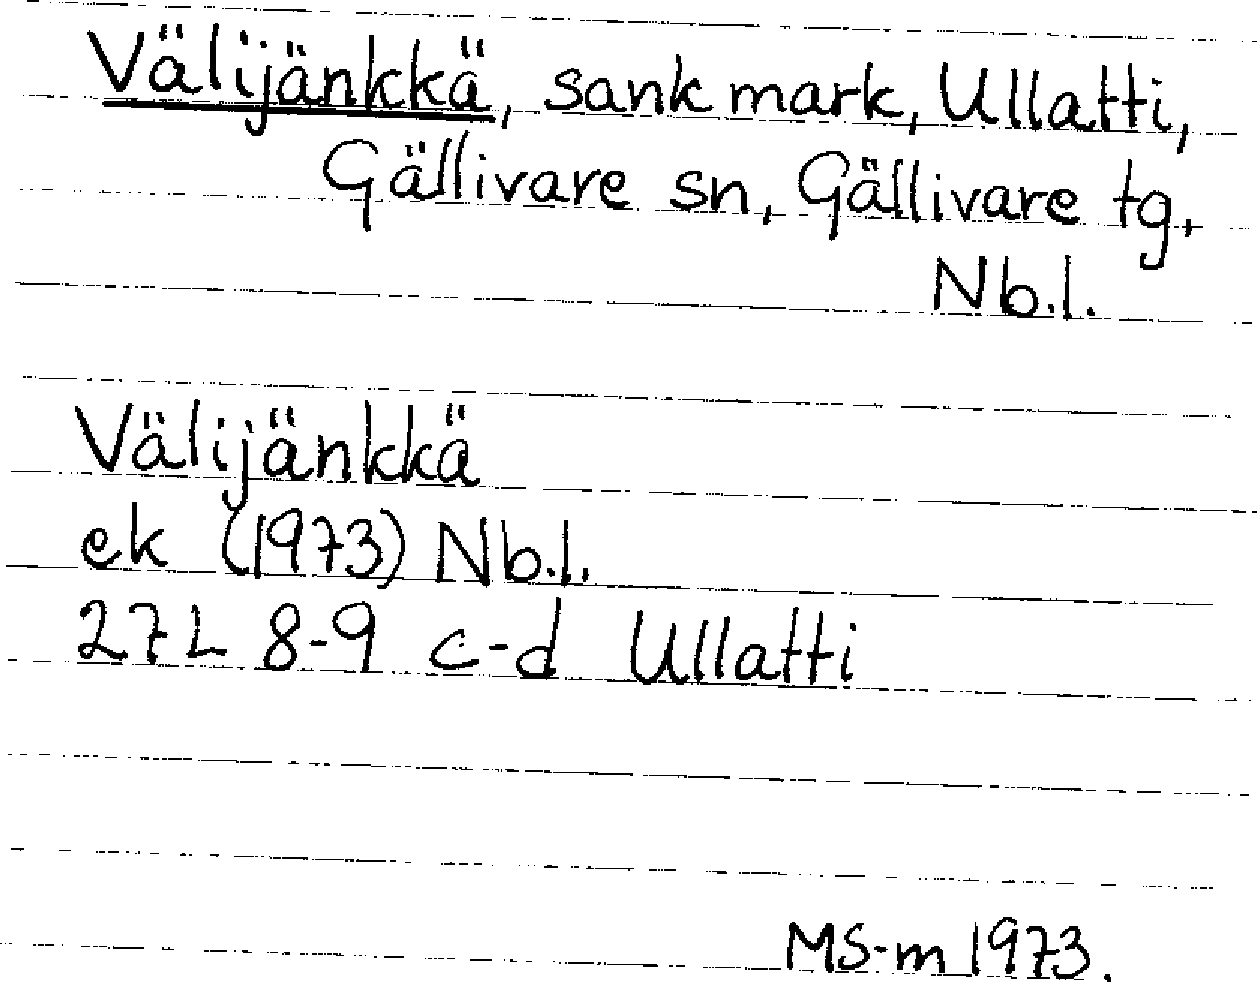 Välijänkkä, sank mark, Ullatti,
Gällivare sn, Gällivare tg,
Nb.l.
Välijänkkä
ek (1973) Nb.l.
27L 8-9 c-d Ullatti
MS-m 1973.